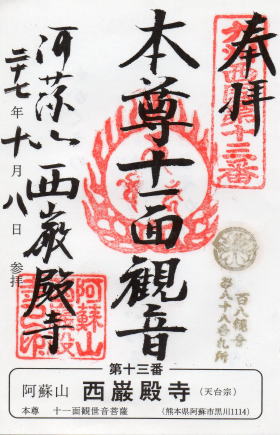 奉拝
九州西国第十三番
本尊十一面観音
阿蘇山 西巌殿寺
二十七年十月八日 参拝
第十三番
阿蘇山 西巌殿寺 (天台宗)
本尊 十一面観世音菩薩 (熊本県阿蘇市黒川1114)